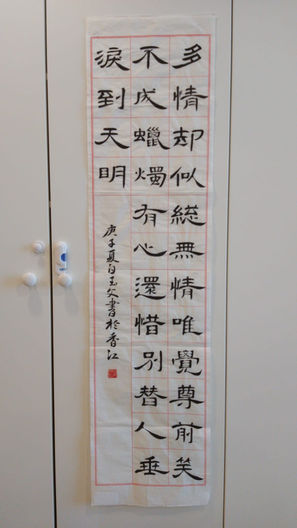 多情却似総無情唯覺尊前笑
不成蠟燭有心還惜别替人垂
淚到天明
庚子夏白玉文書於香江